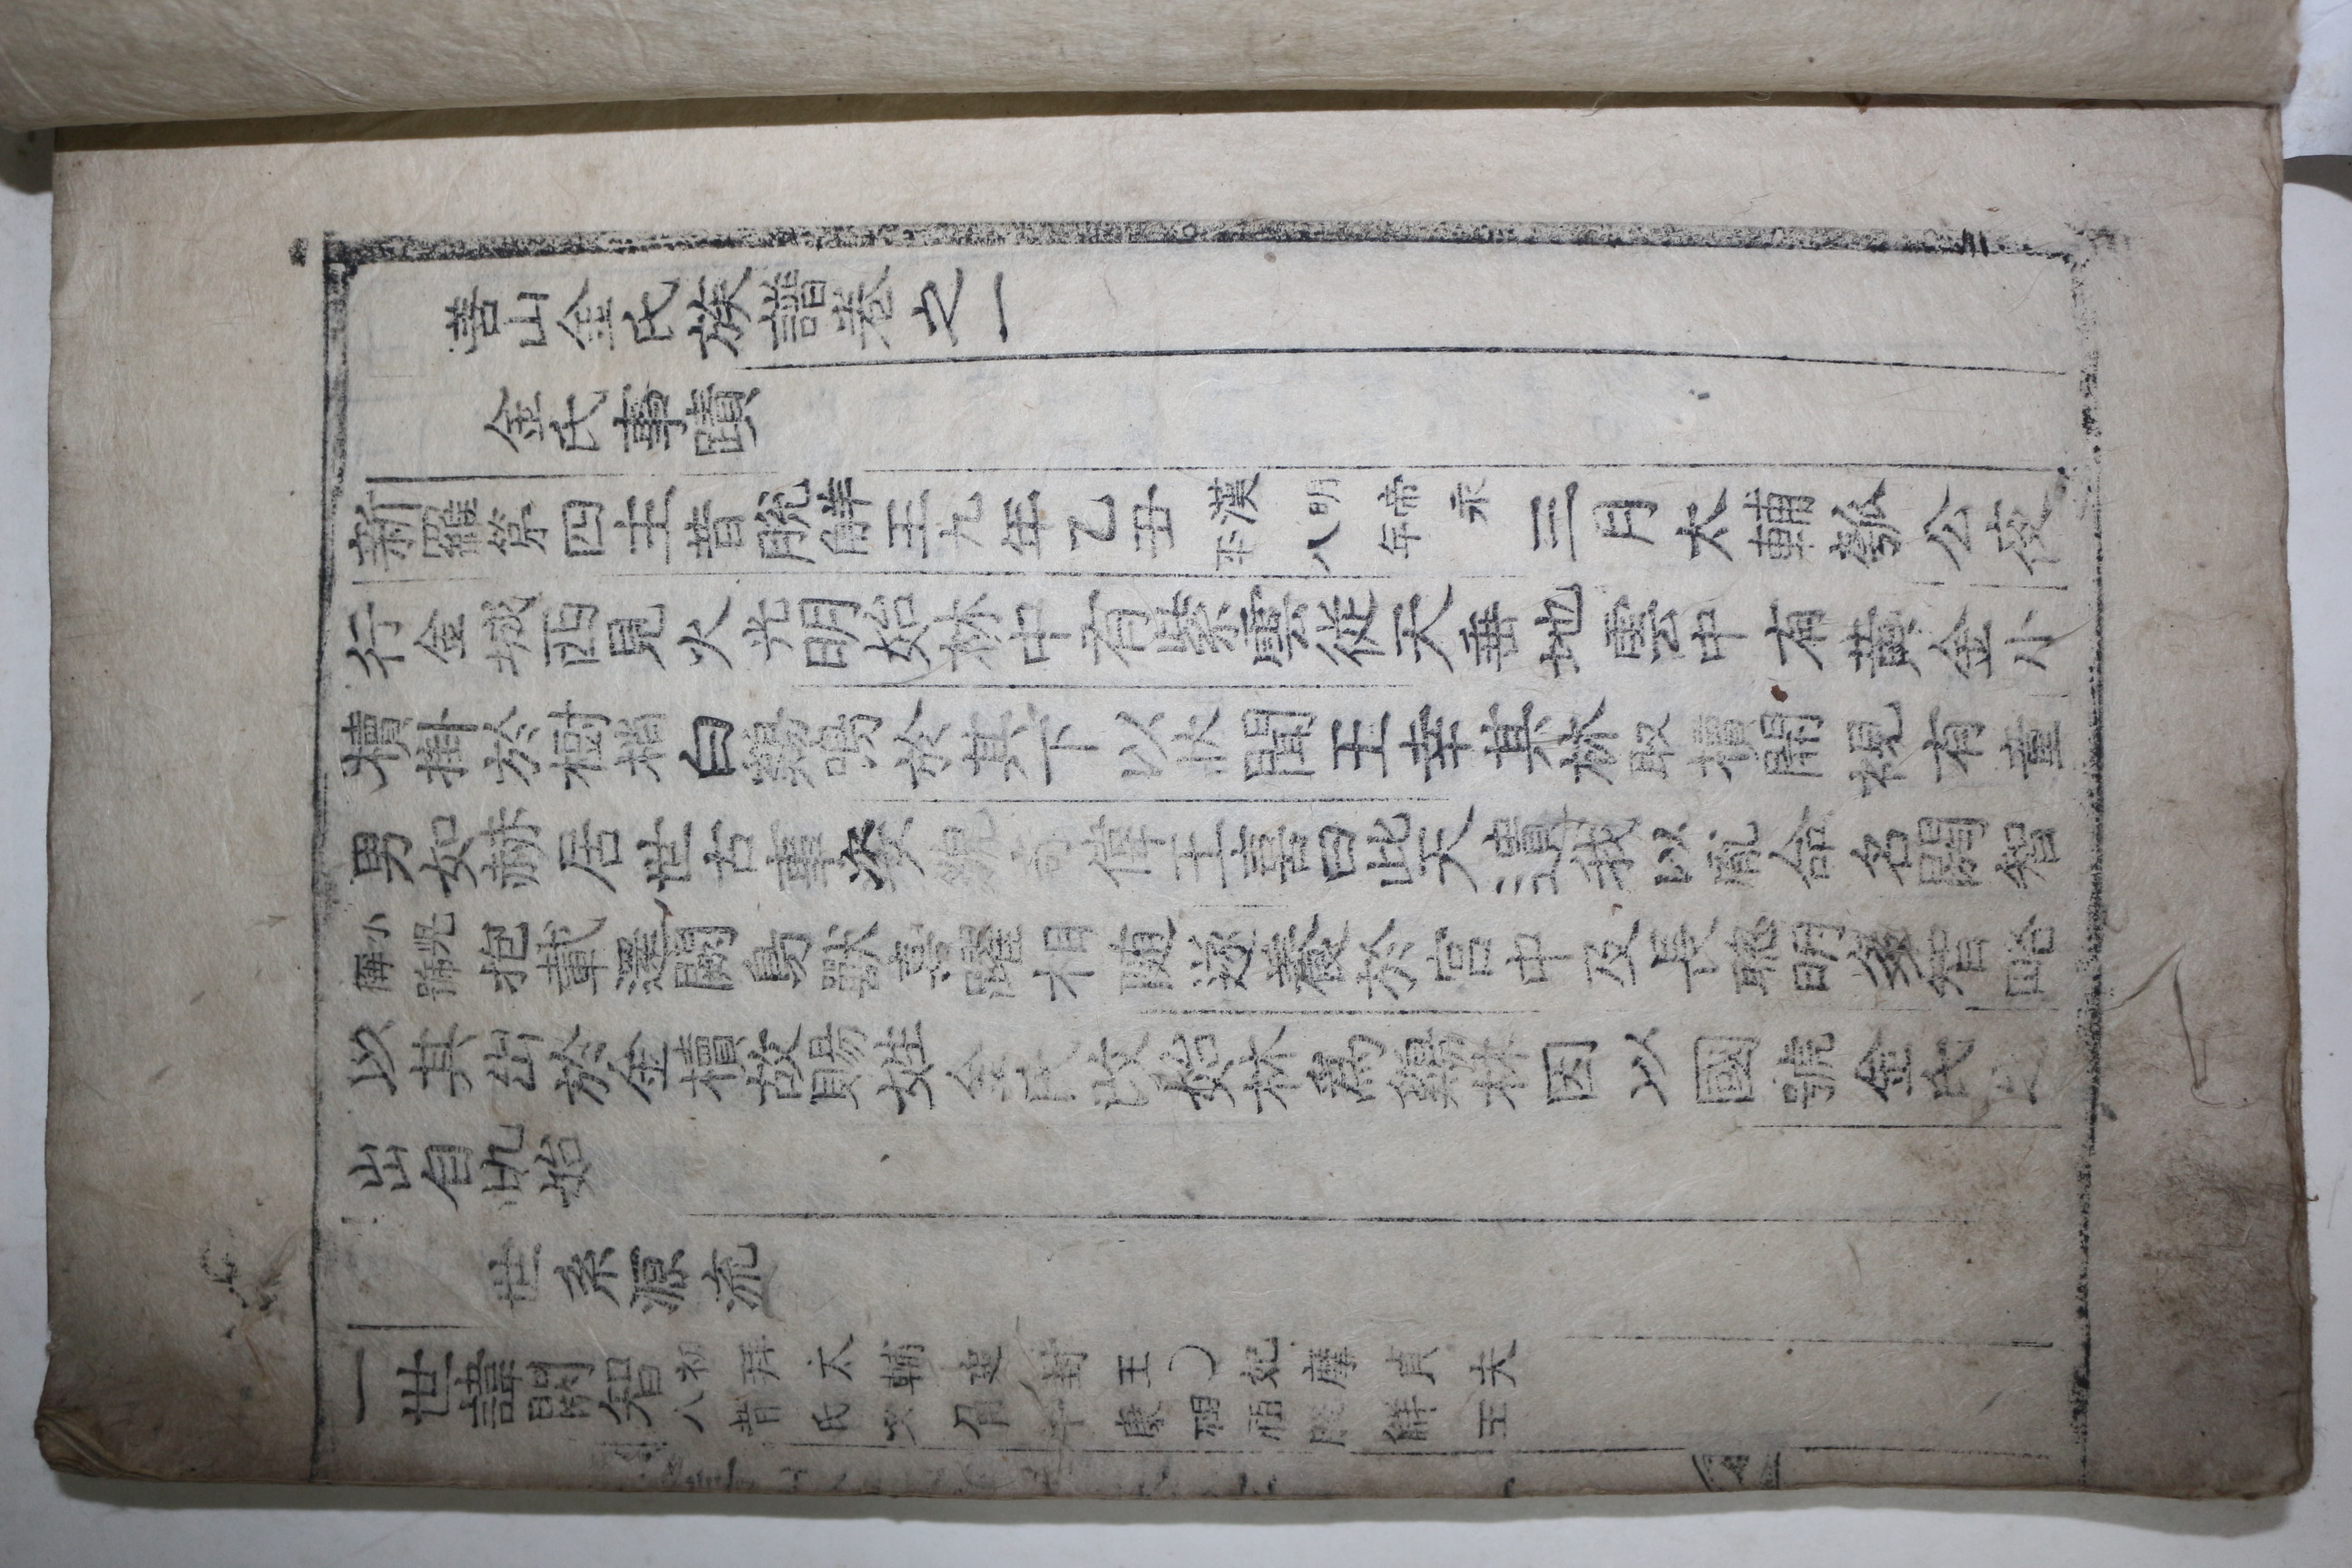 善山金氏族譜卷之一
金氏事蹟
新羅第四主昔脫解王九年乙丑漢明帝永平八年三月太輔瓠公夜
行金城西見火光明始林中有紫雲從天垂地雲中有黃金小
櫝掛於樹梢白鷄鳴於其下以狀聞王幸其林取櫝開視有童
男如赫居世古事姿貌奇偉王喜曰此天遺我以胤命名閼智
小兒稱號抱載還闕鳥獸喜躍相随遂養於宮中及長聰明多智略
以其出於金櫝故賜姓金氏改始林爲鷄林因以國號金氏之
出自此始
世系源流
一世諱閼智初拜太輔追封王○妃摩貞夫
人昔氏父角干康祖祖脫解王